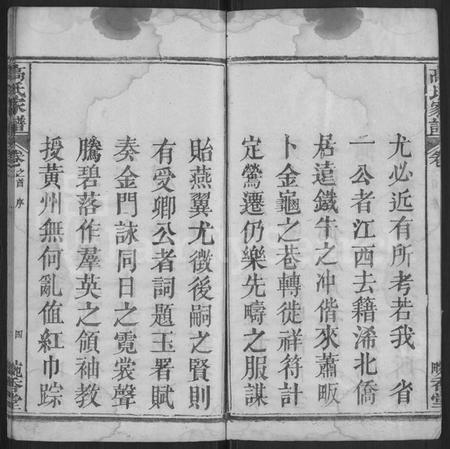 高氏家譜
卷
晚香堂
尤必近有所考若我　省
一公者江西去籍浠北僑
居遠鐵牛之冲偕來蕭畈
卜金龜之巷轉徙祥符計
定鶯遷仍樂先疇之服謀
貽燕翼尤徵後嗣之賢則
有受卿公者詞題玉署賦
奏金門詠同日之霓裳聲
騰碧落作羣英之領袖教
授黃州無何亂值紅巾踪
高氏家譜
卷之首 序
四
晚香堂